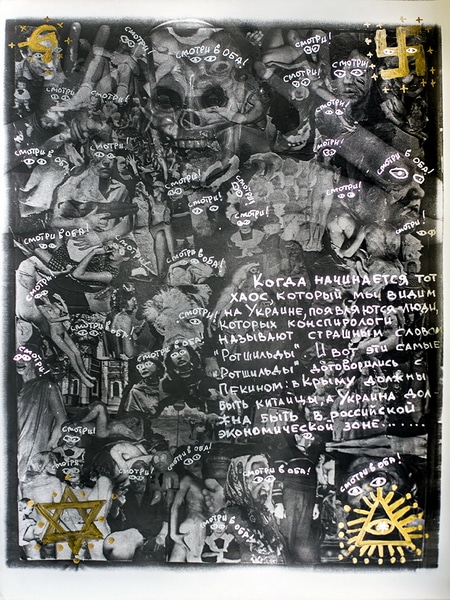 СМОТРИ!
СМОТРИ В ОБА!
СМОТРИ!
СМОТРИ!
СМОТРИ!
СМОТРИ!
СМОТРИ В
СМОТРИ!
СМОТРИ!
СМОТРИ!
СМОТРИ В ОБА!
СМОТРИ В ОБА!
СМОТРИ!
СМОТРИ!
СМОТРИ!
СМОТРИ!
СМОТРИ!
СМОТРИ!
СМОТРИ В ОБА!
СМОТРИ!
СМОТРИ В ОБА!
СМОТРИ!
КОГДА НАЧИНАЕТСЯ ТОТ
ХАОС, КОТОРЫЙ МЫ ВИДИМ
НА УКРАИНЕ, ПОЯВЛЯЮТСЯ ЛЮДИ,
КОТОРЫХ КОНСПИРОЛОГИ
НАЗЫВАЮТ СТРАШНЫМ СЛОВОМ
"РОТШИЛЬДЫ". И ВОТ ЭТИ САМЫЕ
"РОТШИЛЬДЫ" ДОГОВОРИЛИСЬ С
ПЕКИНОМ: В КРЫМУ ДОЛЖНЫ
БЫТЬ КИТАЙЦЫ, А УКРАИНА ДОЛ
ЖНА БЫТЬ В РОССИЙСКОЙ
ЭКОНОМИЧЕСКОЙ ЗОНЕ......
СМОТРИ!
СМОТРИ В ОБА!
СМОТРИ!
СМОТРИ!
СМОТРИ!
СМОТРИ В ОБА!
СМОТРИ!
СМОТРИ!
СМОТРИ В ОБА!
СМОТРИ В ОБА!
СМОТРИ В ОБА!
СМОТРИ В ОБА!